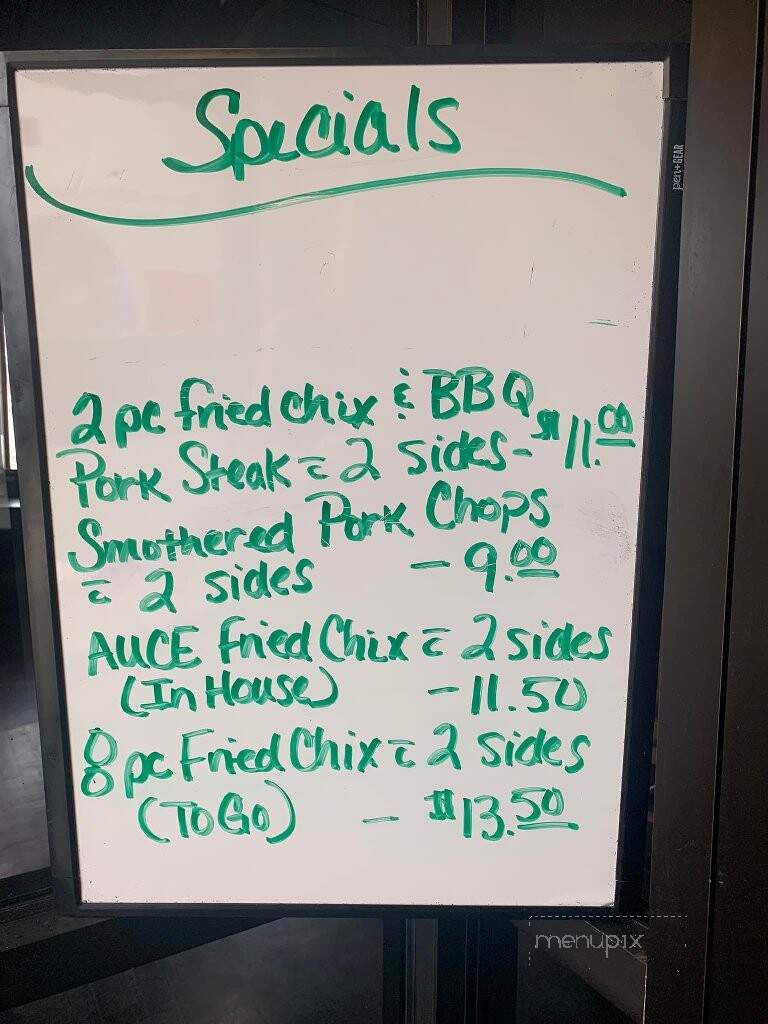 Specials
pen+GEAR
2 pc fried chix & BBQ
Pork Steak c̄ 2 sides - $11.00
Smothered Pork Chops
c̄ 2 sides - 9.00
AUCE Fried Chix c̄ 2 sides
(In House) - 11.50
8 pc Fried Chix c̄ 2 sides
(To Go) - $13.50
menupix